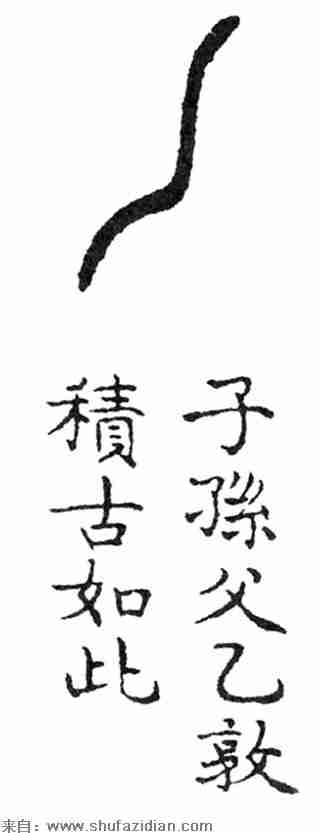 子孫父乙敦
積古如此
来自：www.shufazidian.com